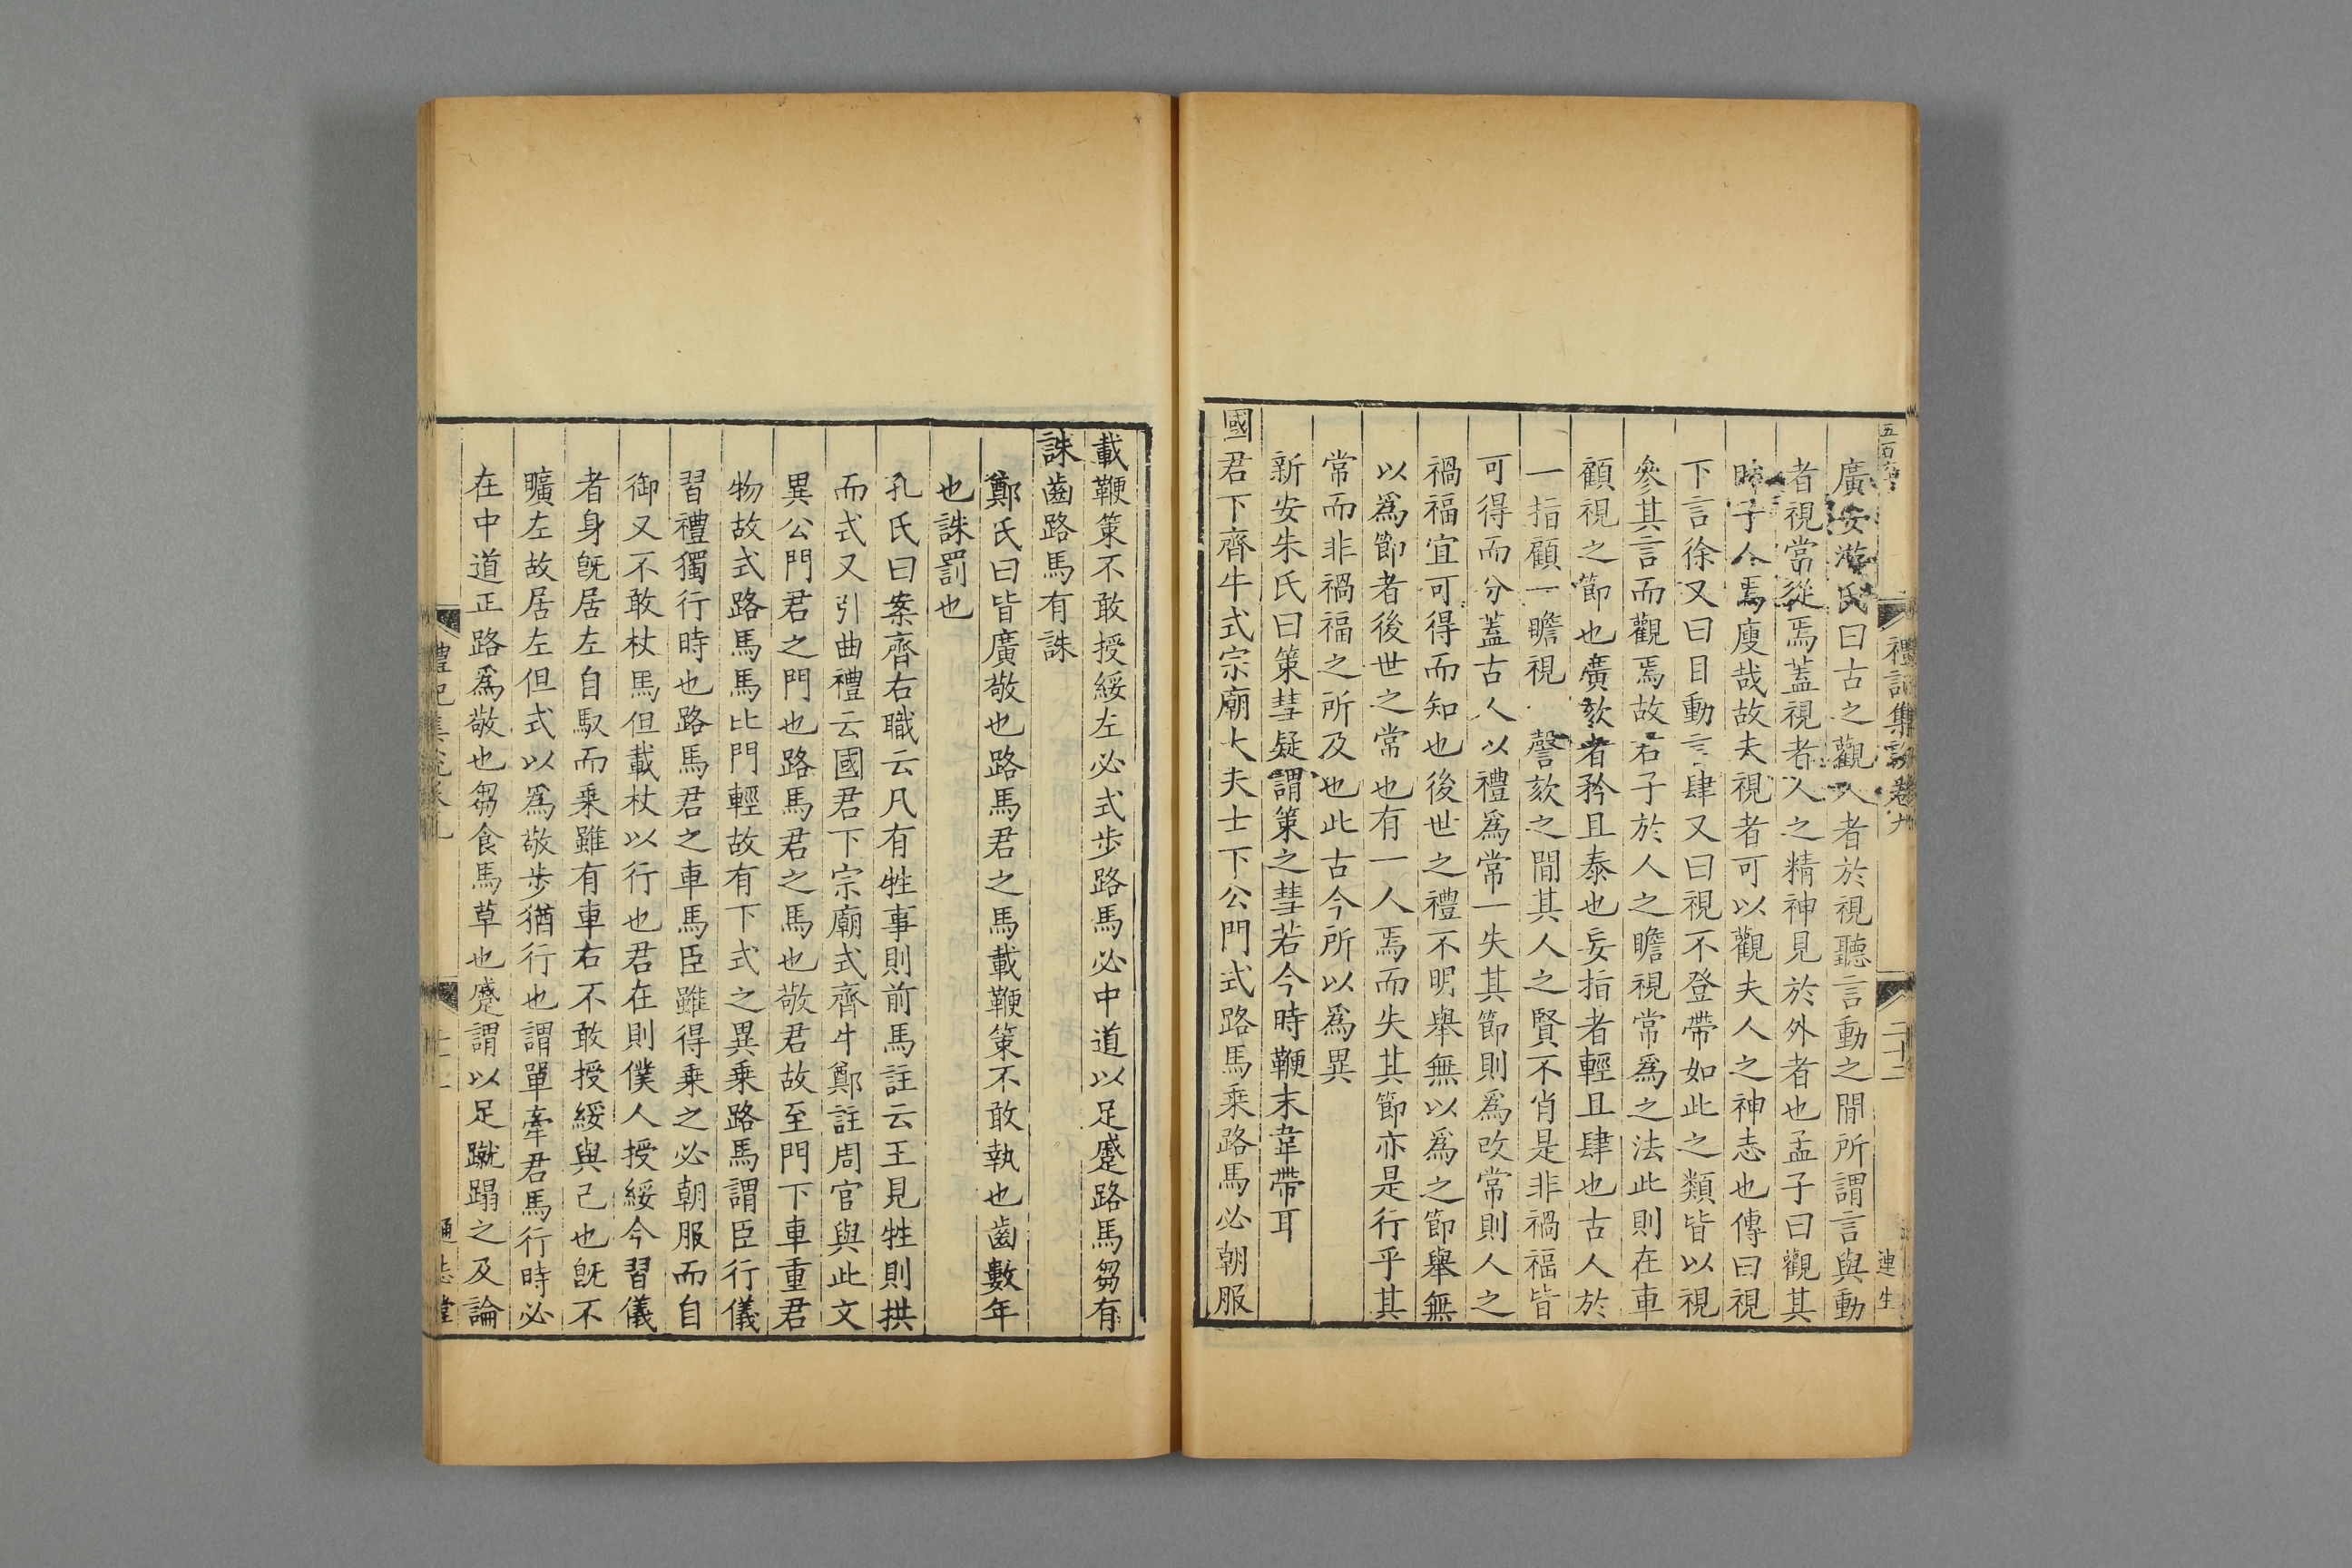 禮記集說卷九
二十二
連生
廣安游氏曰古之觀人者於視聽言動之閒所謂言與動
者視當從焉蓋視者人之精神見於外者也孟子曰觀其
眸子人焉廋哉故夫視者可以觀夫人之神志也傳曰視
下言徐又曰目動言肆又曰視不登帶如此之類皆以視
參其言而觀焉故君子於人之瞻視常爲之法此則在車
顧視之節也廣欬者矜且泰也妄指者輕且肆也古人於
一指顧一瞻視 謦欬之閒其人之賢不肖是非禍福皆
可得而分蓋古人以禮爲常一失其節則爲改常則人之
禍福宜可得而知也後世之禮不明舉無以爲之節舉無
以爲節者後世之常也有一人焉而失其節亦是行乎其
常而非禍福之所及也此古今所以爲異
新安朱氏曰策彗疑謂策之彗若今時鞭末韋帶耳
國君下齊牛式宗廟大夫士下公門式路馬乗路馬必朝服
載鞭策不敢授綏左必式步路馬必中道以足蹙路馬芻有
誅齒路馬有誅
鄭氏曰皆廣敬也路馬君之馬載鞭策不敢執也齒數年
也誅罰也
孔氏曰案齊右職云凡有牲事則前馬註云王見牲則拱
而式又引曲禮云國君下宗廟式齊牛鄭註周官與此文
異公門君之門也路馬君之馬也敬君故至門下車重君
物故式路馬馬比門輕故有下式之異乗路馬謂臣行儀
習禮獨行時也路馬君之車馬臣雖得乗之必朝服而自
御又不敢杖馬但載杖以行也君在則僕人授綏今習儀
者身旣居左自馭而乗雖有車右不敢授綏與己也旣不
曠左故居左但式以爲敬步猶行也謂單牽君馬行時必
在中道正路爲敬也芻食馬草也蹙謂以足蹴蹋之及論
通志堂